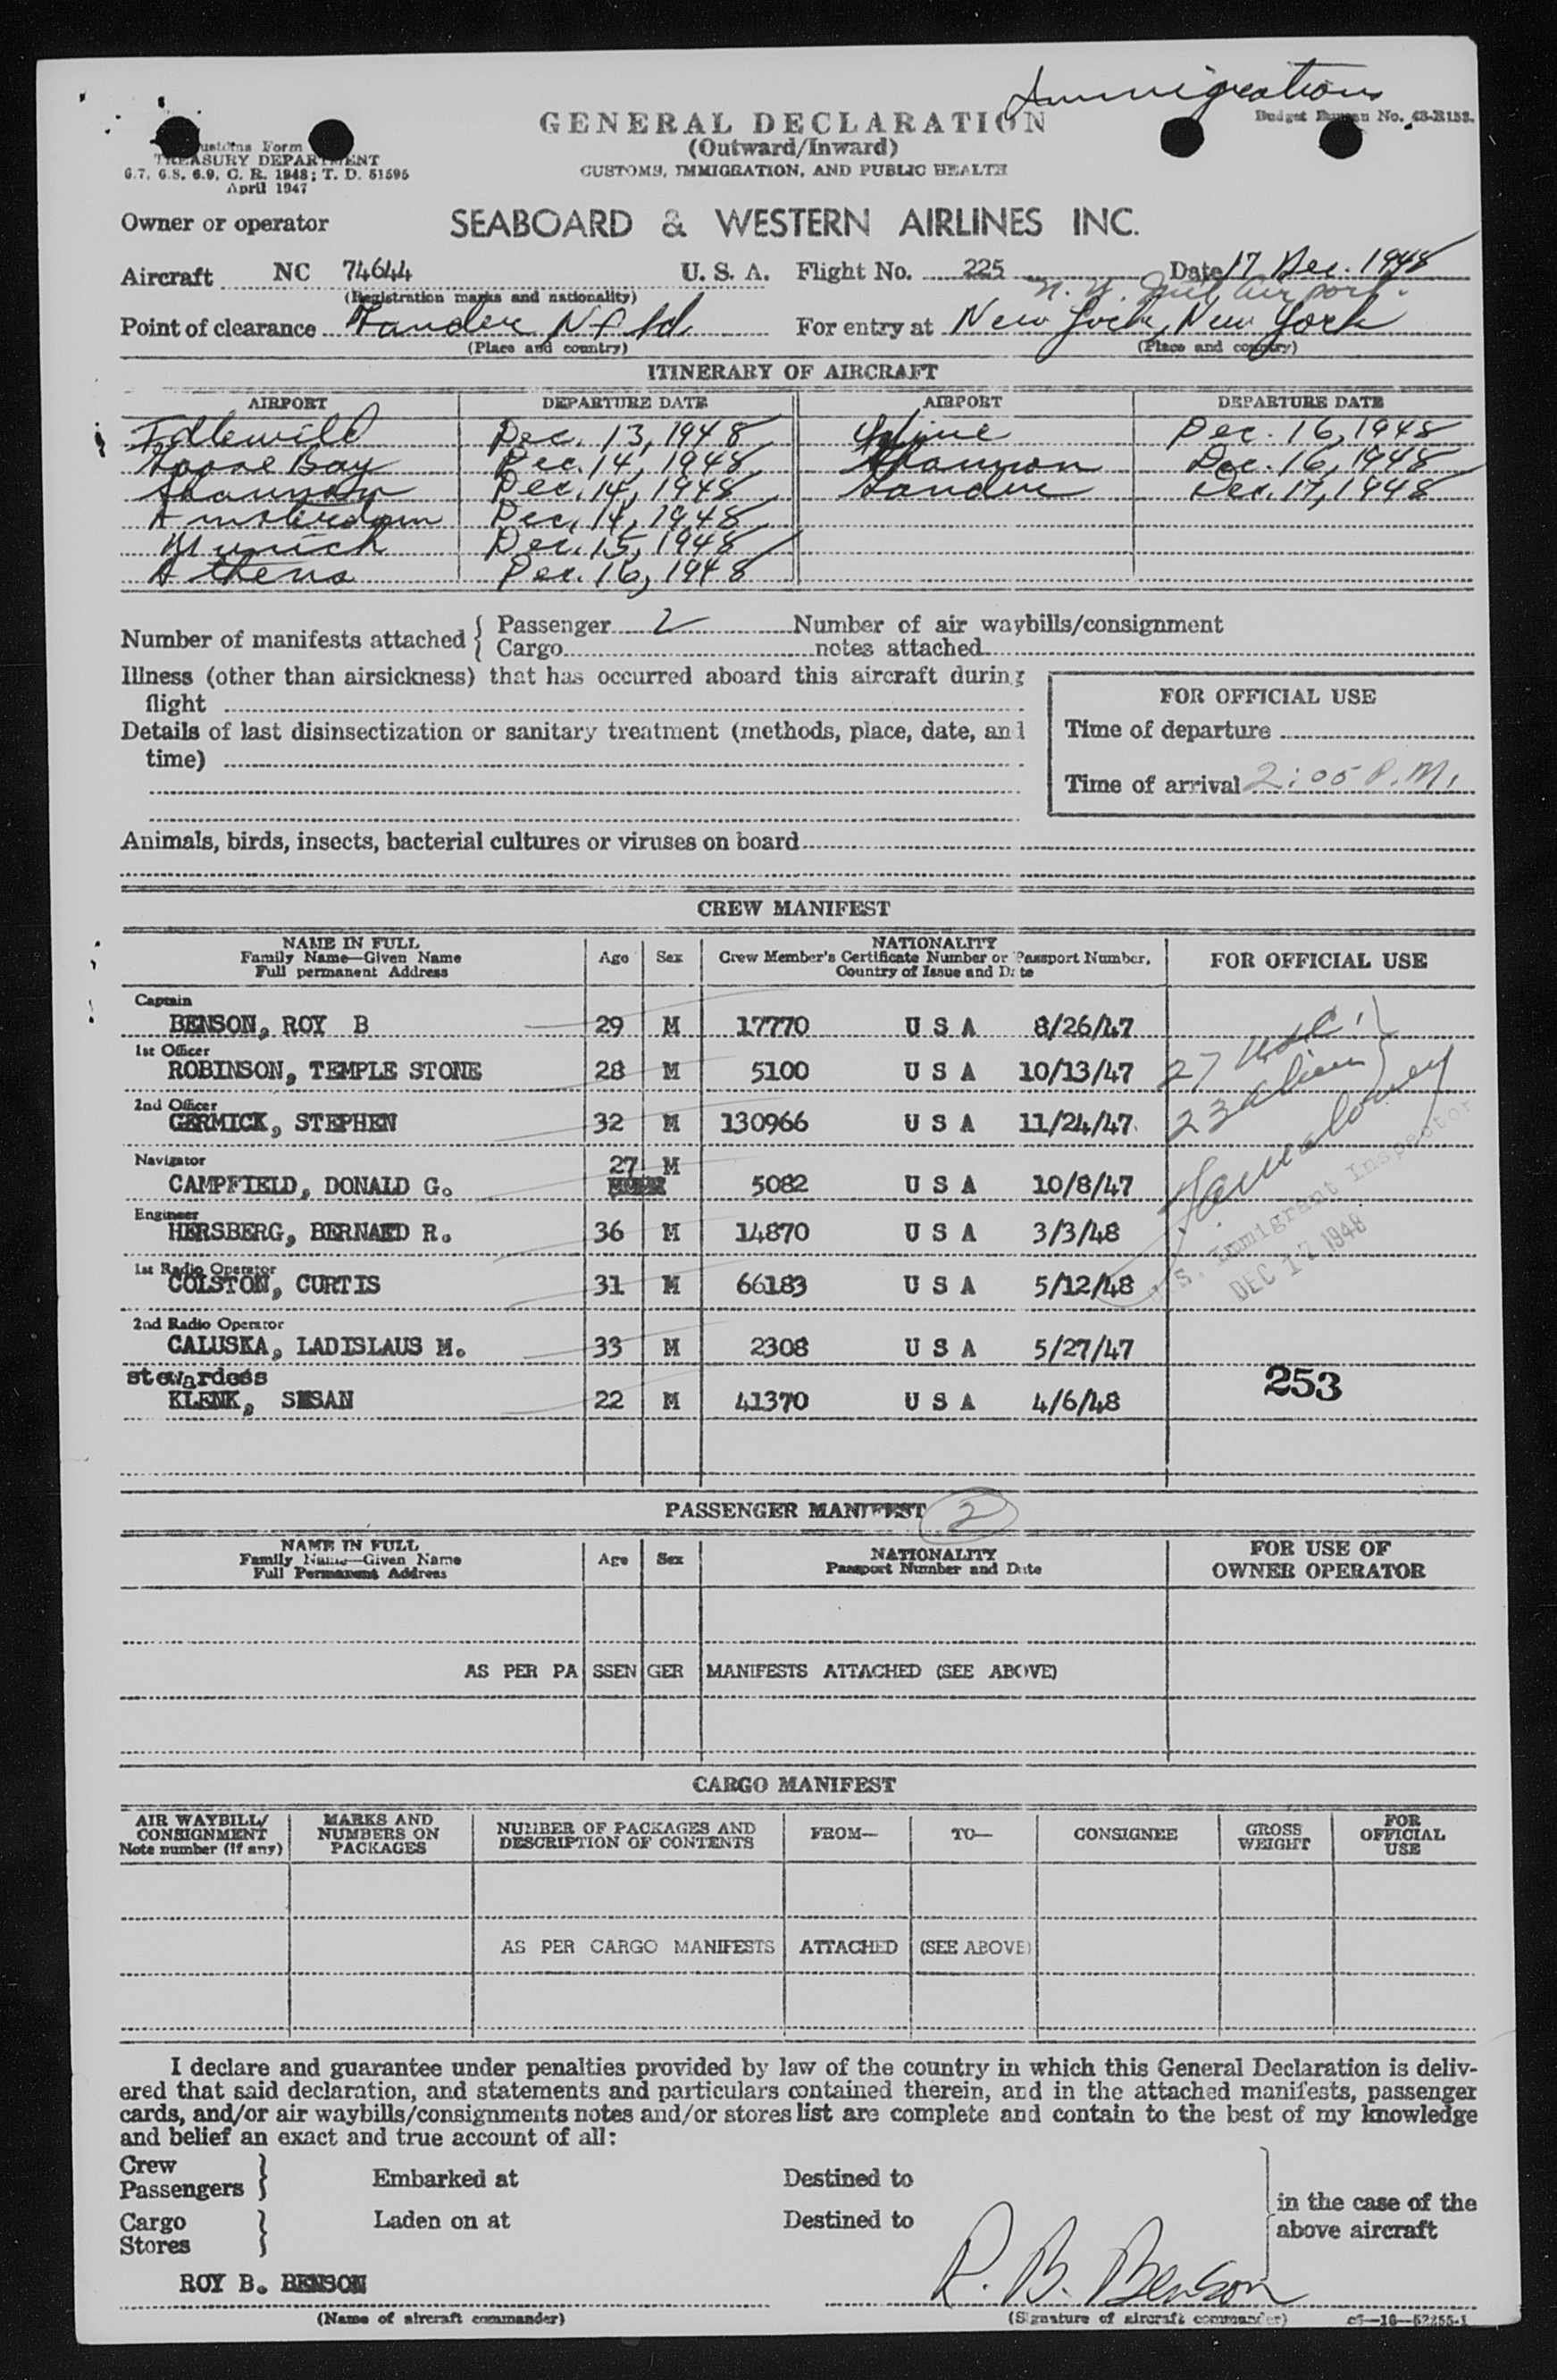 Immigration
GENERAL DECLARATION
Budget Bureau No.
(Outward/Inward)
Customs Form
TREASURY DEPARTMENT
CUSTOMS, IMMIGRATION, AND PUBLIC HEALTH
6.7, 6.8, 6.9, C. R. 1948; T. D. 51595
April 1947
Owner or operator SEABOARD & WESTERN AIRLINES INC.
Aircraft NC 74644 U. S. A. Flight No. 225 Date 17 Dec. 1948
(Registration marks and nationality)
N. Y. Int'l Airport.
Point of clearance Gander Nfld For entry at New York, New York
(Place and country) (Place and country)
ITINERARY OF AIRCRAFT
AIRPORT DEPARTURE DATE AIRPORT DEPARTURE DATE
Idlewild Dec. 13, 1948 Dec. 16, 1948
Goose Bay Dec. 14, 1948 Shannon Dec. 16, 1948
Shannon Dec. 14, 1948 Gander Dec. 17, 1948
Amsterdam Dec. 14, 1948
Munich Dec. 15, 1948
Athens Dec. 16, 1948
Number of manifests attached { Passenger 2 Number of air waybills/consignment
Cargo notes attached
Illness (other than airsickness) that has occurred aboard this aircraft during
flight
FOR OFFICIAL USE
Details of last disinsectization or sanitary treatment (methods, place, date, and
Time of departure
time)
Time of arrival 2:05 P.M.
Animals, birds, insects, bacterial cultures or viruses on board
CREW MANIFEST
NAME IN FULL
Family Name—Given Name
Full permanent Address
Age Sex
NATIONALITY
Crew Member's Certificate Number or Passport Number,
Country of Issue and Date
FOR OFFICIAL USE
Captain
BENSON, ROY B 29 M 17770 U S A 8/26/47
1st Officer
ROBINSON, TEMPLE STONE 28 M 5100 U S A 10/13/47
27 USC
2nd Officer
GERMICK, STEPHEN 32 M 130966 U S A 11/24/47
23 Alien
Navigator 27 M
CAMPFIELD, DONALD G. 5082 U S A 10/8/47
Engineer
HERSBERG, BERNARD R. 36 M 14870 U S A 3/3/48
U. S. Immigrant Inspector
DEC 17 1948
1st Radio Operator
COLSTON, CURTIS 31 M 66183 U S A 5/12/48
2nd Radio Operator
CALUSKA, LADISLAUS M. 33 M 2308 U S A 5/27/47
stewardess
253
KLENK, SUSAN 22 M 41370 U S A 4/6/48
PASSENGER MANIFEST 2
NAME IN FULL
Family Name—Given Name
Full Permanent Address
Age Sex
NATIONALITY
Passport Number and Date
FOR USE OF
OWNER OPERATOR
AS PER PASSENGER MANIFESTS ATTACHED (SEE ABOVE)
CARGO MANIFEST
AIR WAYBILL/
CONSIGNMENT
Note number (if any)
MARKS AND
NUMBERS ON
PACKAGES
NUMBER OF PACKAGES AND
DESCRIPTION OF CONTENTS
FROM— TO— CONSIGNEE
GROSS
WEIGHT
FOR
OFFICIAL
USE
AS PER CARGO MANIFESTS ATTACHED (SEE ABOVE)
I declare and guarantee under penalties provided by law of the country in which this General Declaration is deliv-
ered that said declaration, and statements and particulars contained therein, and in the attached manifests, passenger
cards, and/or air waybills/consignments notes and/or stores list are complete and contain to the best of my knowledge
and belief an exact and true account of all:
Crew
Passengers } Embarked at Destined to
in the case of the
Cargo
Stores } Laden on at Destined to
above aircraft
ROY B. BENSON R. B. Benson
(Name of aircraft commander) (Signature of aircraft commander) 16—52255-1